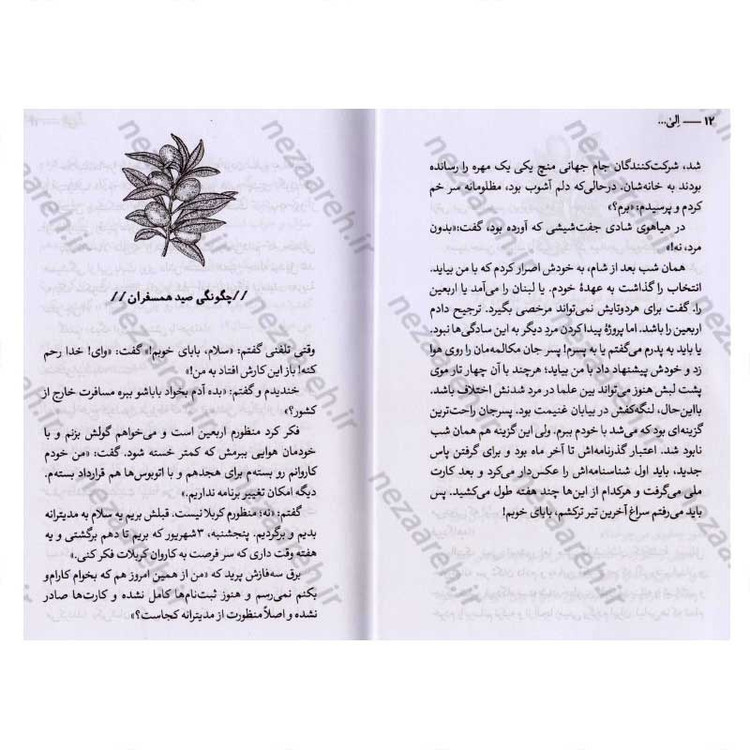 ۱۲ — اِلیٰ...
شد، شرکت‌کنندگان جام جهانی منچ یکی یک مهره را رسانده
بودند به خانه‌شان. درحالی‌که دلم آشوب بود، مظلومانه سر خم
کردم و پرسیدم: «برم؟»
در هیاهوی شادی جفت‌شیشی که آورده بود، گفت: «بدون
مرد، نه!»
همان شب بعد از شام، به خودش اصرار کردم که با من بیاید.
انتخاب را گذاشت به عهدهٔ خودم. یا لبنان را می‌آمد یا اربعین
را. گفت برای هردوتایش نمی‌تواند مرخصی بگیرد. ترجیح دادم
اربعین را باشد. اما پروژهٔ پیدا کردن مردِ دیگر به این سادگی‌ها نبود.
یا باید به پدرم می‌گفتم یا به پسرم! پسر جان مکالمه‌مان را روی هوا
زد و خودش پیشنهاد داد با من بیاید؛ هرچند با آن چهار تار موی
پشت لبش هنوز می‌تواند بین علما در مرد شدنش اختلاف باشد.
بااین‌حال، لنگه‌کفش در بیابان غنیمت بود. پسرجان راحت‌ترین
گزینه‌ای بود که می‌شد با خودم ببرم. ولی این گزینه هم همان شب
نابود شد. اعتبار گذرنامه‌اش تا آخر ماه بود و برای گرفتن پاس
جدید، باید اول شناسنامه‌اش را عکس‌دار می‌کرد و بعد کارت
ملی می‌گرفت و هرکدام از این‌ها چند هفته طول می‌کشید. پس
باید می‌رفتم سراغ آخرین تیر ترکشم، بابای خوبم!
//چگونگی صید همسفران//
وقتی تلفنی گفتم: «سلام، بابای خوبم!» گفت: «وای! خدا رحم
کنه! باز این کارش افتاد به من!»
خندیدم و گفتم: «بده آدم بخواد باباشو ببره مسافرت خارج از
کشور؟»
فکر کرد منظورم اربعین است و می‌خواهم گولش بزنم و با
خودمان هوایی ببرمش که کمتر خسته شود. گفت: «من خودم
کاروانم رو بسته‌م برای هجدهم و با اتوبوس‌ها هم قرارداد بسته‌م.
دیگه امکان تغییر برنامه نداریم.»
گفتم: «نه! منظورم کربلا نیست. قبلش بریم یه سلام به مدیترانه
بدیم و برگردیم. پنجشنبه، ۳شهریور که بریم تا دهم برگشتی و یه
هفته وقت داری که سر فرصت به کاروان کربلات فکر کنی.»
برق سه‌فازش پرید که «من از همین امروز هم که بخوام کارام‌و
بکنم نمی‌رسم و هنوز ثبت‌نام‌ها کامل نشده و کارت‌ها صادر
نشده و اصلاً منظورت از مدیترانه کجاست؟»
nezaareh.ir